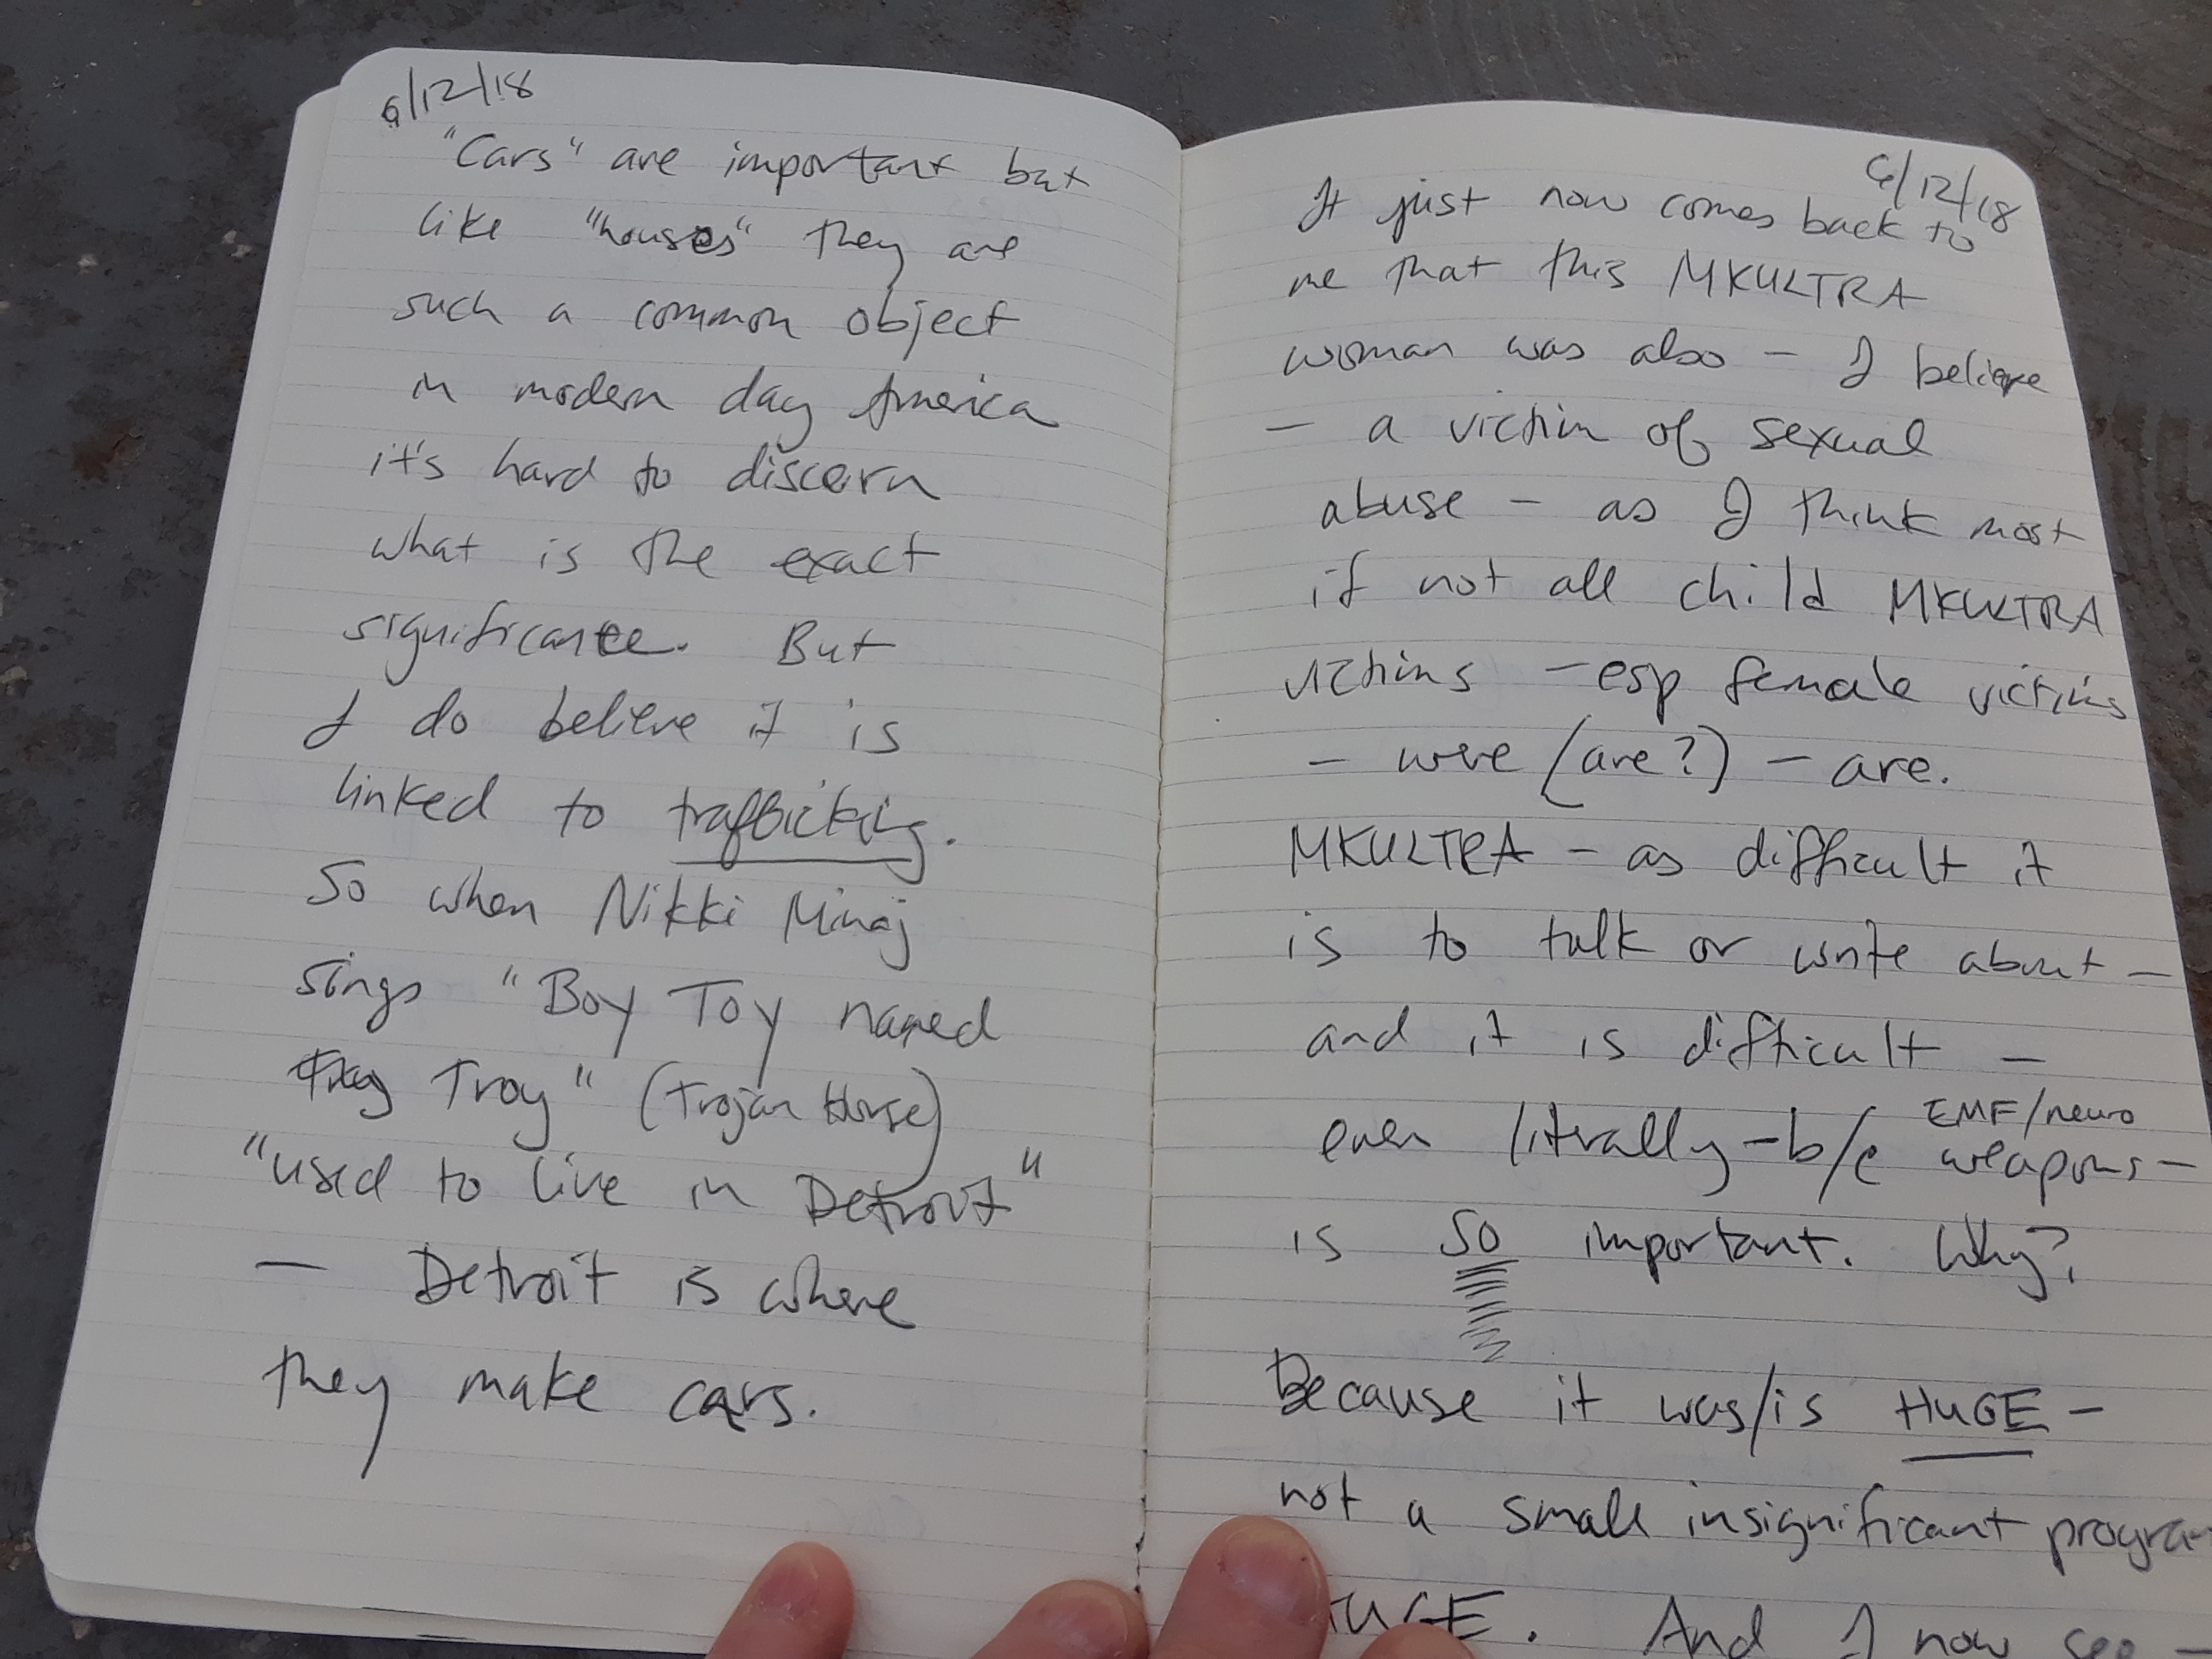 6/12/18
"Cars" are important but
like "houses" they are
such a common object
in modern day America
it's hard to discern
what is the exact
significance. But
I do believe it is
linked to trafficking.
So when Nikki Minaj
sings "Boy Toy named
Troy" (Trojan Horse)
"used to live in Detroit"
— Detroit is where
they make cars.
6/12/18
It just now comes back to
me that this MKULTRA
woman was also — I believe
— a victim of sexual
abuse — as I think most
if not all child MKULTRA
victims — esp female victims
— were (are?) — are.
MKULTRA — as difficult it
is to talk or write about —
and it is difficult —
even literally — b/c EMF/neuro
weapons —
is SO important. Why?
Because it was/is HUGE —
not a small insignificant progra
HUGE. And I now see —